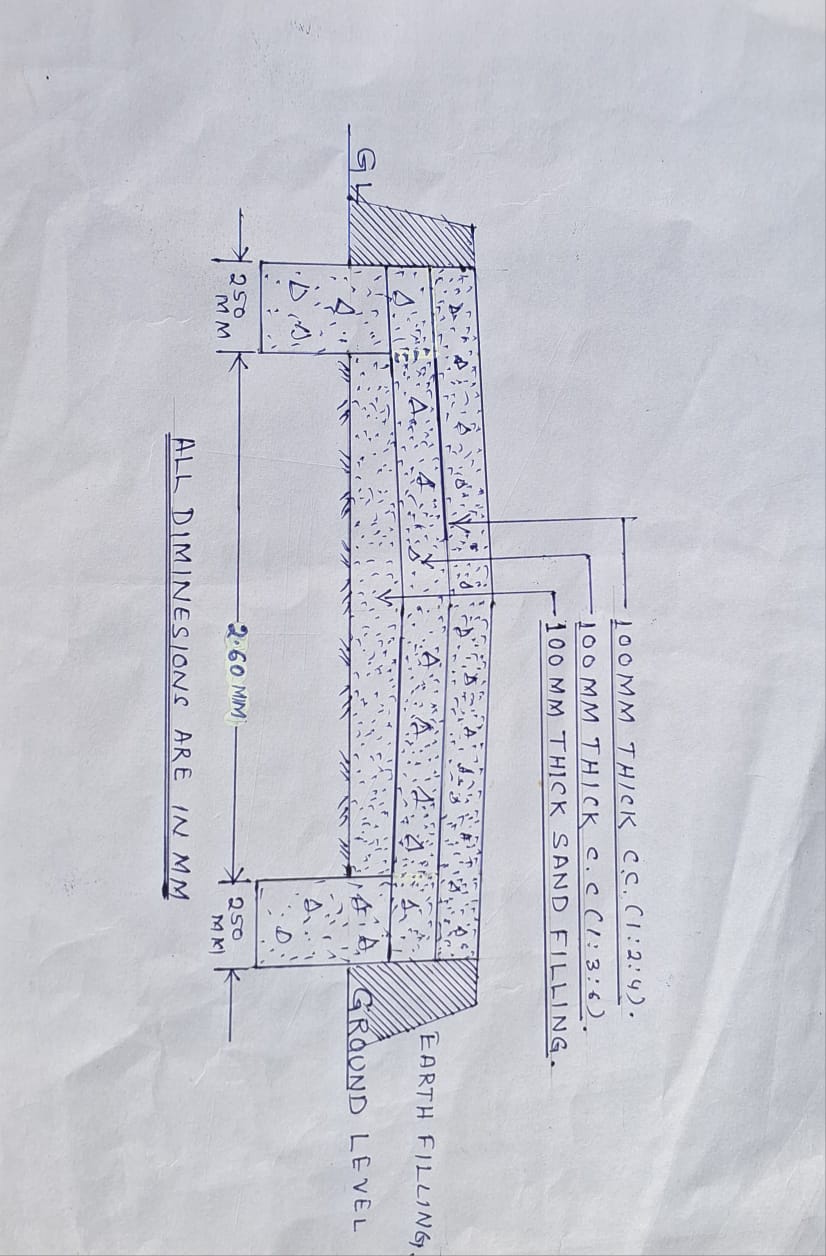 100 MM THICK C.C. (1:2:4).
100 MM THICK C.C (1:3:6).
100 MM THICK SAND FILLING.
EARTH FILLING.
GL
GROUND LEVEL
250
MM
2.60 MM
250
MM
ALL DIMINESIONS ARE IN MM